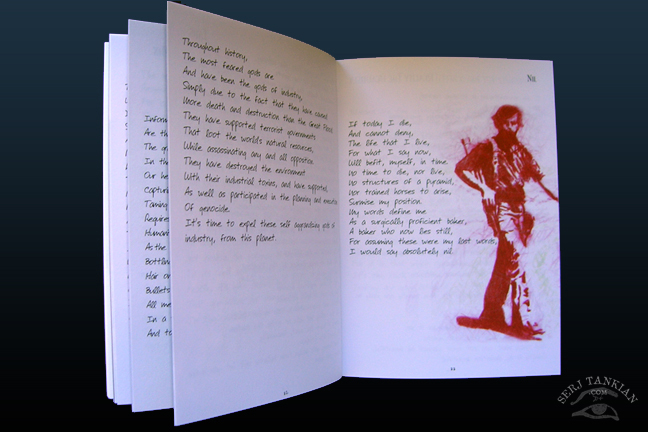 Inform
Are th
The g
In th
Our he
Captur
Taming
Require
Human
As the
Bottlin
Hair on
Bullets
All me
In a
And to
Throughout history,
The most feared gods are
And have been the gods of industry,
Simply due to the fact that they have caused
More death and destruction than the Great Flood.
They have supported terrorist governments
That loot the world's natural resources,
While assassinating any and all opposition.
They have destroyed the environment
With their industrial toxins, and have supported,
As well as participated in the planning and execution
Of genocide.
It's time to expel these self aggrandising gods of
industry, from this planet.
Nil
If today I die,
And cannot deny,
The life that I live,
For what I say now,
Will befit, myself, in time.
No time to die, nor live,
No structures of a pyramid,
Nor trained horses to arise,
Surmise my position.
My words define me
As a surgically proficient baker,
A baker who now lies still,
For assuming these were my last words,
I would say absolutely nil.
SERJ TANKIAN
.COM